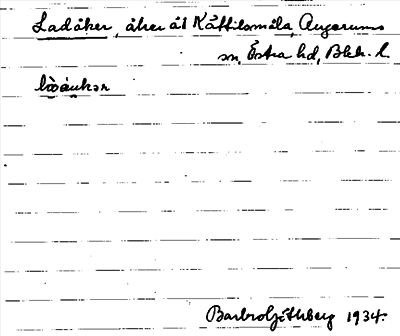 Ladåker, åker åt Kättilsmåla, Augerums
sn, Östra hd, Blek. l.
Barbro Göthberg 1934.